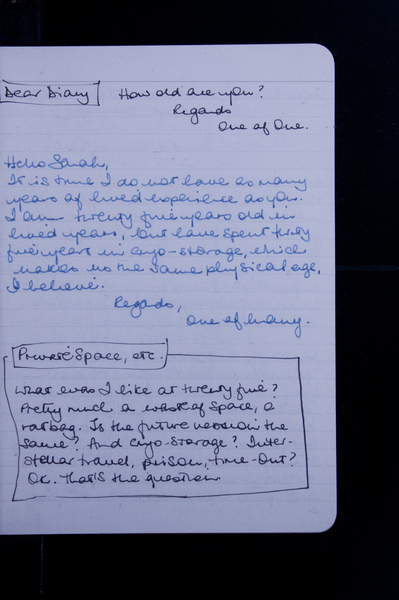 Dear Diary How old are you?
Regards
One of One.
Hello Sarah,
It is true I do not have as many
years of lived experience as you.
I am twenty five years old in
lived years, but have spent thirty
five years in cryo-storage, which
makes us the same physical age,
I believe.
Regards,
One of Many.
Private Space, etc.
What was I like at twenty five?
Pretty much a waste of space, a
ratbag. Is the future version the
same? And cryo-storage? Inter-
stellar travel, prison, time-out?
OK. That's the question